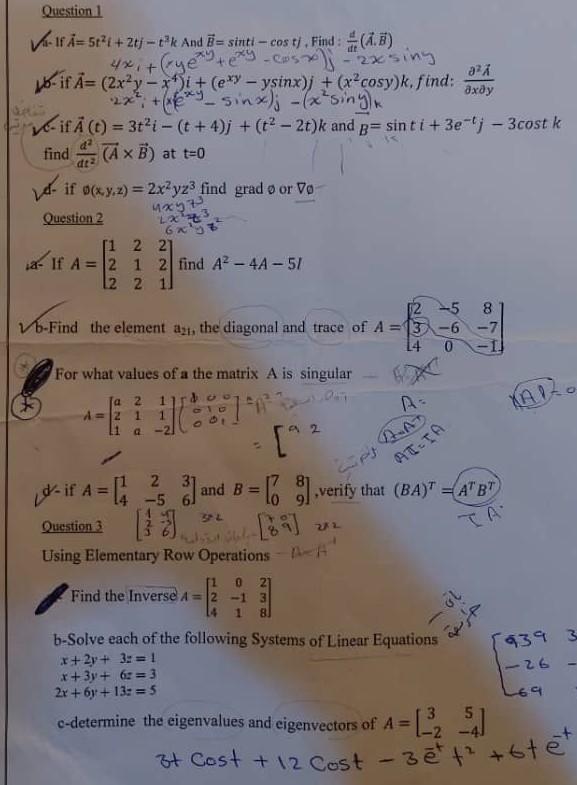 Question 1
a- If A⃗= 5t²i + 2tj − t³k And B⃗= sinti − cos tj , Find : d/dt (A⃗.B⃗)
4xi + (xye^xy + e^xy - cosx)j - 2x siny
b- if A⃗= (2x²y − x⁴)i + (e^xy − ysinx)j + (x²cosy)k, find: ∂²A⃗/∂x∂y
2x²i + (xe^xy - sinx)j - (x² siny)k
c- if A⃗ (t) = 3t²i − (t + 4)j + (t² − 2t)k and B⃗= sin t i + 3e^−t j − 3cost k
find d²/dt² (A⃗ × B⃗) at t=0
d- if ø(x,y,z) = 2x²yz³ find grad ø or ∇ø
4xyz³
2x²z³
6x²yz²
Question 2
a- If A = [1 2 2
2 1 2
2 2 1] find A² − 4A − 5I
b-Find the element a₂₁, the diagonal and trace of A = [2 −5 8
3 −6 −7
4 0 −1]
For what values of a the matrix A is singular
A = [a 2 1
2 1 1
1 a −2]
d- if A = [1 2 3
4 −5 6] and B = [7 8
0 9] ,verify that (BA)ᵀ = AᵀBᵀ
[1 4
2 -5
3 6] 3x2 [7 0
8 9] 2x2
Question 3
Using Elementary Row Operations
Find the Inverse A = [1 0 2
2 −1 3
4 1 8]
b-Solve each of the following Systems of Linear Equations
x + 2y + 3z = 1
x + 3y + 6z = 3
2x + 6y + 13z = 5
c-determine the eigenvalues and eigenvectors of A = [3 5
−2 −4]
3t Cost + 12 Cost − 3e^-t t² + 6t e^-t